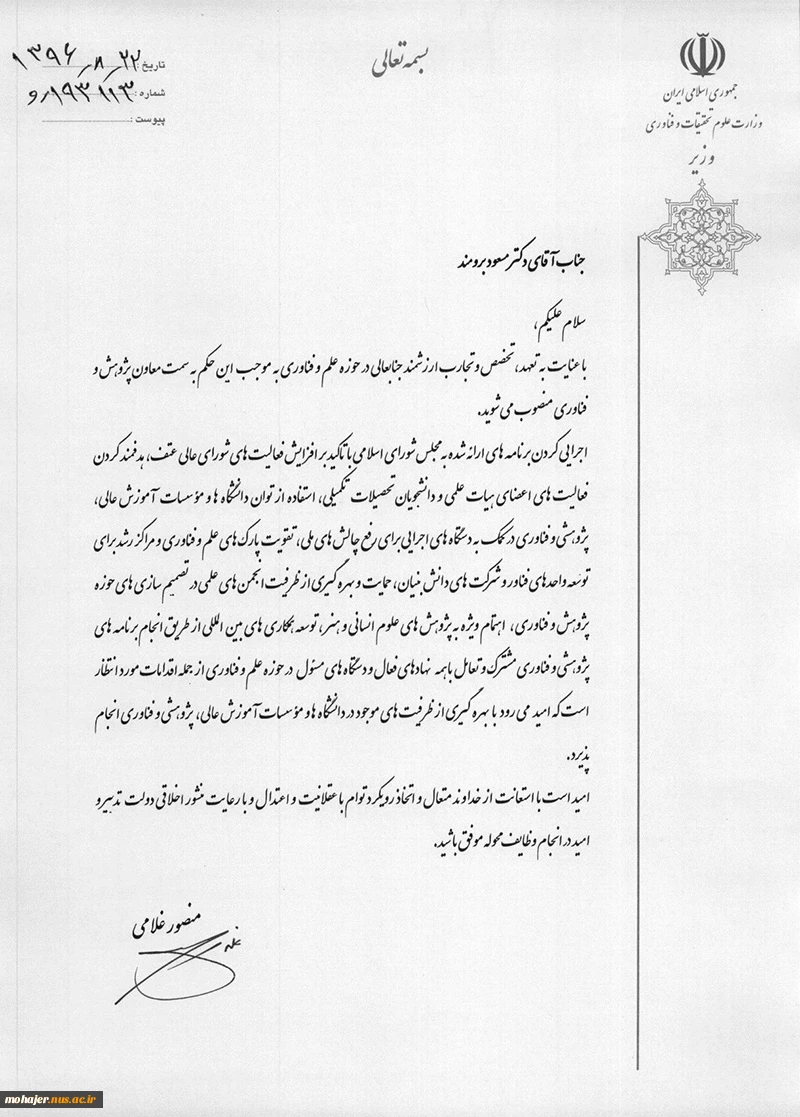 بسمه تعالی
جمهوری اسلامی ایران
وزارت علوم تحقیقات و فناوری
وزیر
تاریخ: ۱۳۹۶/۸/۲۲
شماره: ۱۹۳۱۱۳/و
پیوست:
جناب آقای دکتر مسعود برومند
سلام علیکم،
با عنایت به تعهد، تخصص و تجارب ارزشمند جنابعالی در حوزه علم و فناوری به موجب این حکم به سمت معاون پژوهش و
فناوری منصوب می شوید.
اجرایی کردن برنامه های ارائه شده به مجلس شورای اسلامی با تاکید بر افزایش فعالیت های شورای عالی عتف، هدفمند کردن
فعالیت های اعضای هیات علمی و دانشجویان تحصیلات تکمیلی، استفاده از توان دانشگاه ها و مؤسسات آموزش عالی،
پژوهشی و فناوری در کمک به دستگاه های اجرایی برای رفع چالش های ملی، تقویت پارک های علم و فناوری و مراکز رشد برای
توسعه واحدهای فناور و شرکت های دانش بنیان، حمایت و بهره گیری از ظرفیت انجمن های علمی در تصمیم سازی های حوزه
پژوهش و فناوری، اهتمام ویژه به پژوهش های علوم انسانی و هنر، توسعه همکاری های بین المللی از طریق انجام برنامه های
پژوهشی و فناوری مشترک و تعامل با همه نهادهای فعال و دستگاه های مسئول در حوزه علم و فناوری از جمله اقدامات مورد انتظار
است که امید می رود با بهره گیری از ظرفیت های موجود در دانشگاه ها و مؤسسات آموزش عالی، پژوهشی و فناوری انجام
پذیرد.
امید است با استعانت از خداوند متعال و اتخاذ رویکرد توام با عقلانیت و اعتدال و با رعایت منشور اخلاقی دولت تدبیر و
امید در انجام وظایف محوله موفق باشید.
منصور غلامی
mohajer.nus.ac.ir